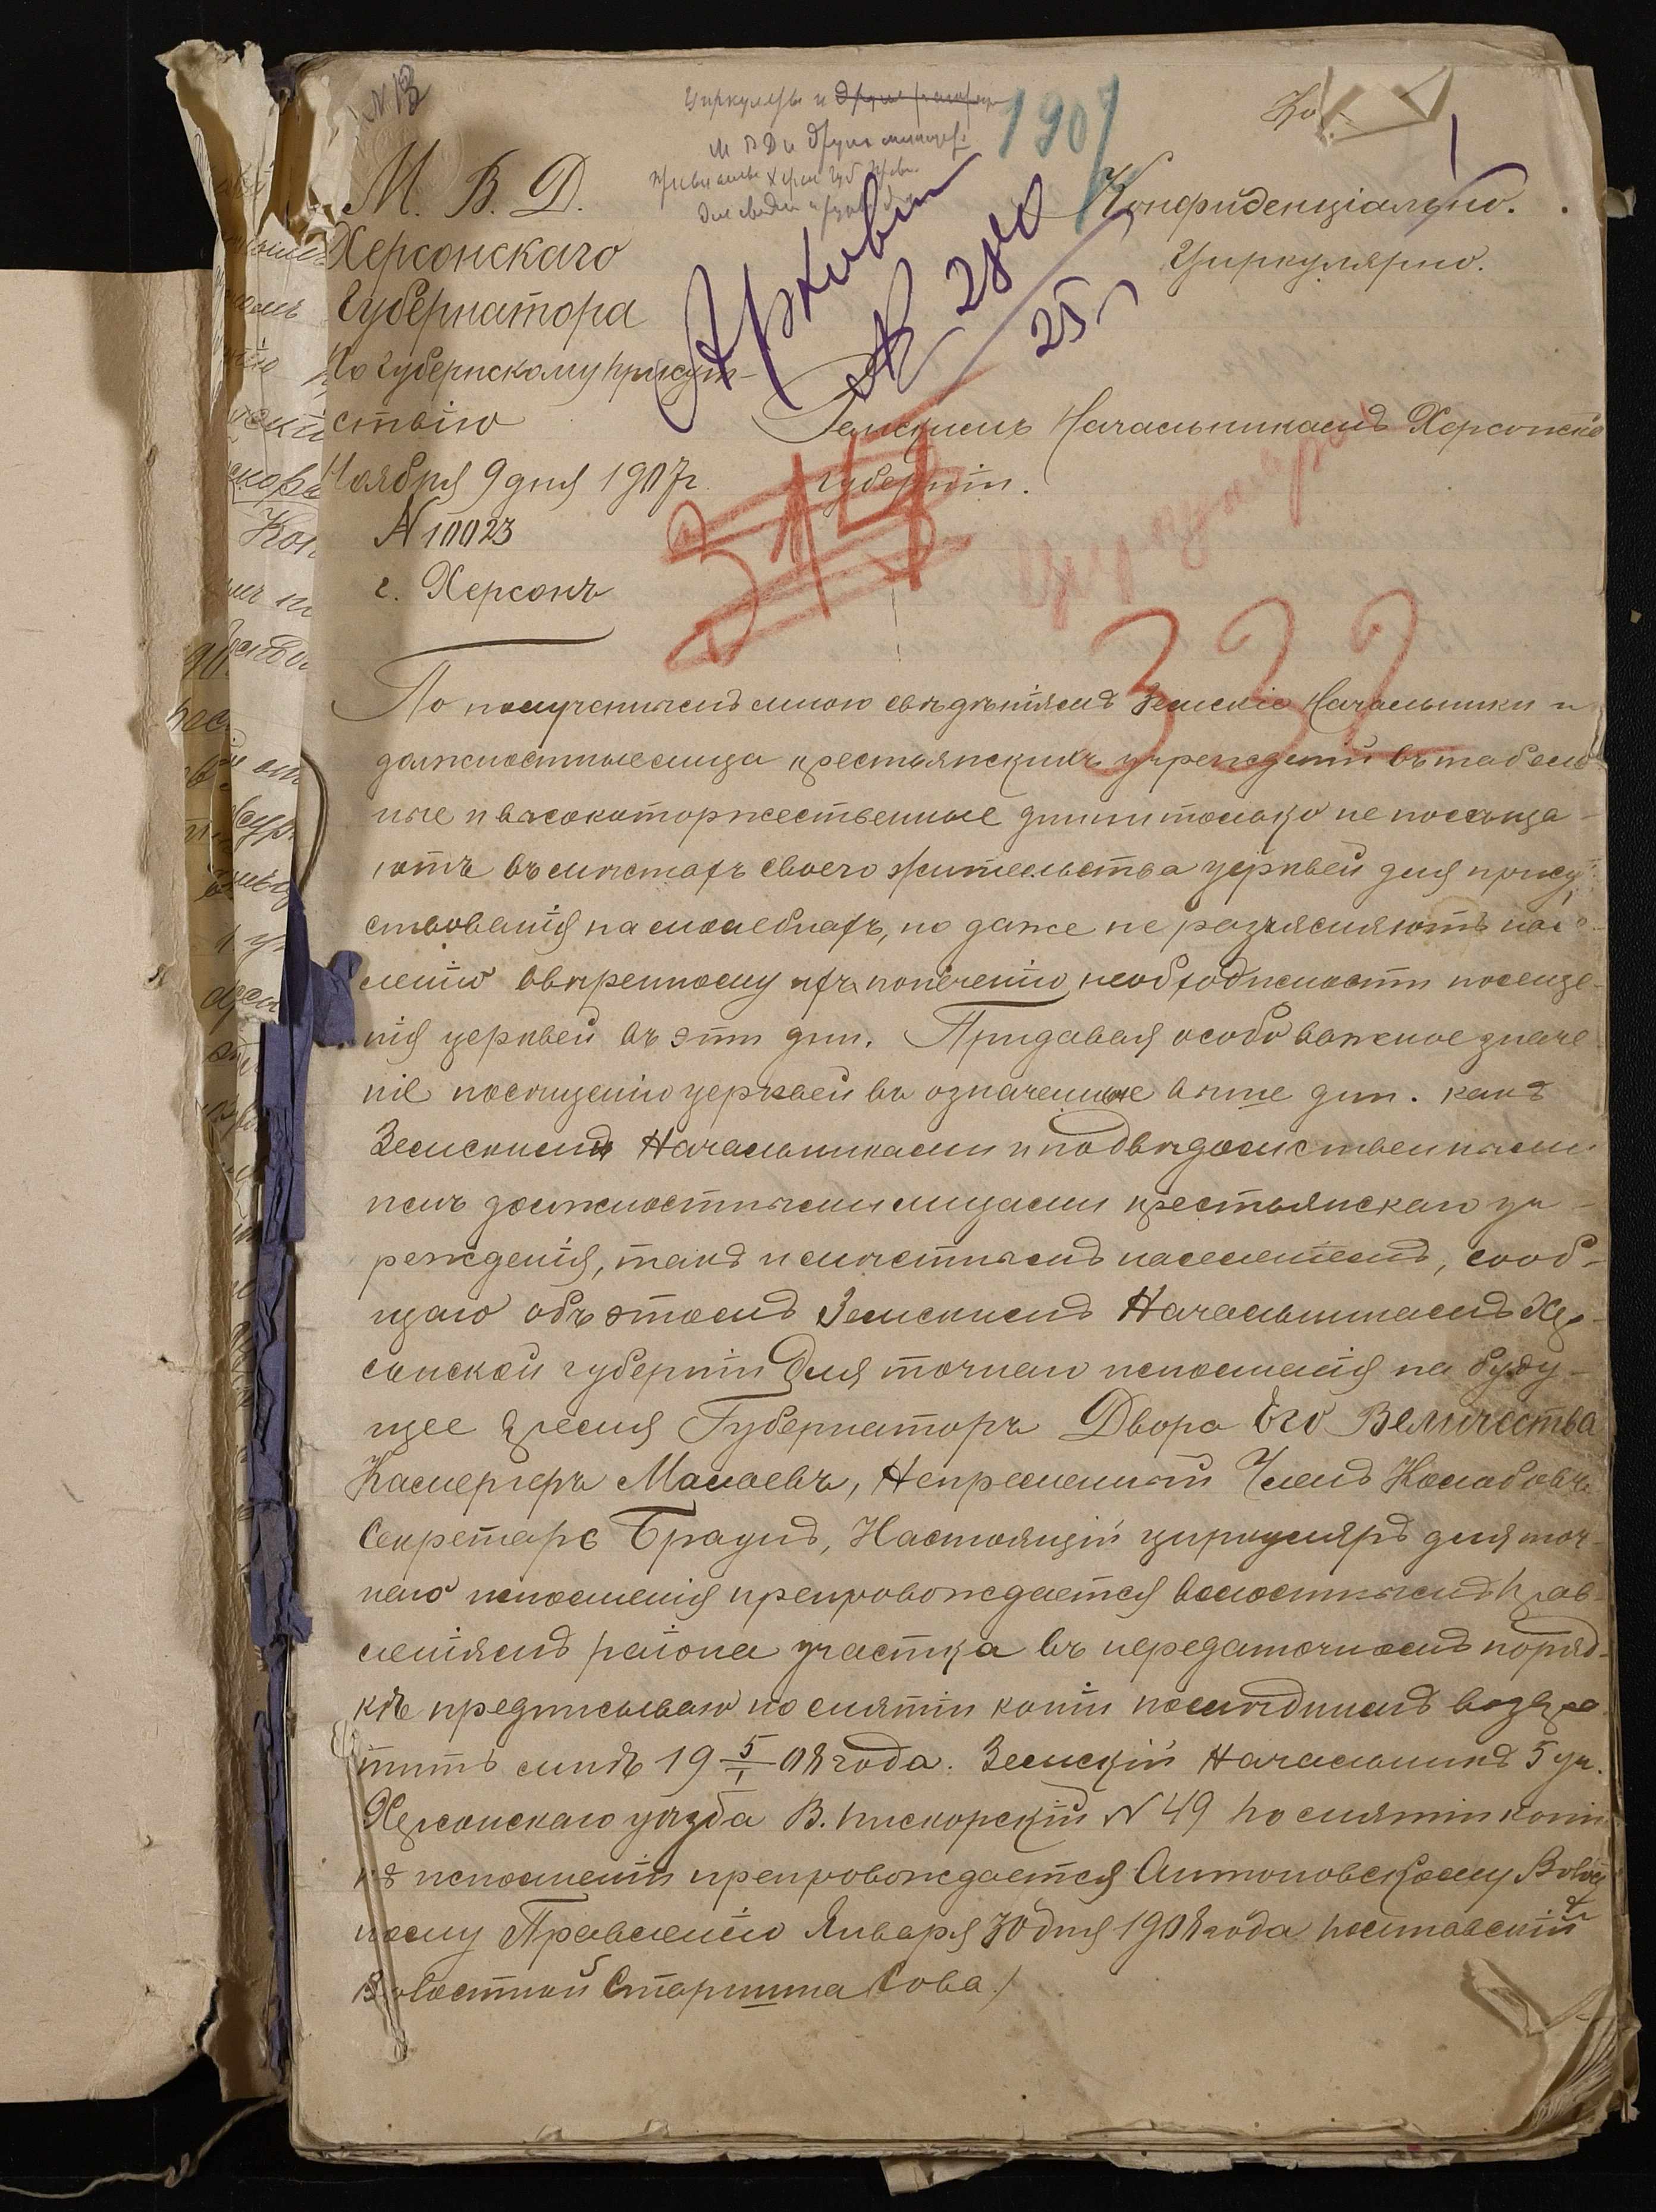 № 13
Циркуляры и
М В Д и других
1907
Ко
М. В. Д.
Конфиденціально.
Херсонскаго
Циркулярно.
Губернатора
Архивъ
№ 2840
25
По губернскому присут-
ствію
Земскимъ Начальникамъ Херсонской
Ноября 9 дня 1907 г.
губерніи.
№ 10023
Циркуляры
г. Херсонъ
332
По полученнымъ мною свѣдѣніямъ Земскіе Начальники и
должностные лица крестьянскихъ учрежденій въ табель-
ные и высокоторжественные дни не только не посѣща-
ютъ въ мѣстахъ своего жительства церквей для присут-
ствованія на молебнахъ, но даже не разъясняютъ насе-
ленію ввѣренному ихъ попеченію необходимости посеще-
нія церквей въ эти дни. Придавая особо важное значе
ніе посѣщенію церквей въ означенные выше дни. какъ
Земскими Начальниками и подвѣдомственными
имъ должностными лицами крестьянскаго уч-
режденія, такъ и мѣстнымъ населеніемъ, сооб-
щаю объ этомъ Земскимъ Начальникамъ Хер-
сонской губерніи для точнаго исполненія на буду-
щее время Губернаторъ Двора Его Величества
Камергеръ Малаевъ, Непременный Членъ
Секретарь Браунъ, Настоящій циркуляръ для точ-
наго исполненія препровождается волостнымъ Прав-
леніямъ района участка въ передаточномъ поряд-
кѣ предписываю по снятіи копіи послѣднимъ возвра-
тить мнѣ 19 5/I 08 года. Земскій Начальникъ 5 уч.
Херсонскаго уѣзда В. Пискорскій № 49 По снятіи копіи
къ исполненію препровождается Антоновскому Волост
ному Правленію Января 30 дня 1908 года
Волостной Старшина Сова /